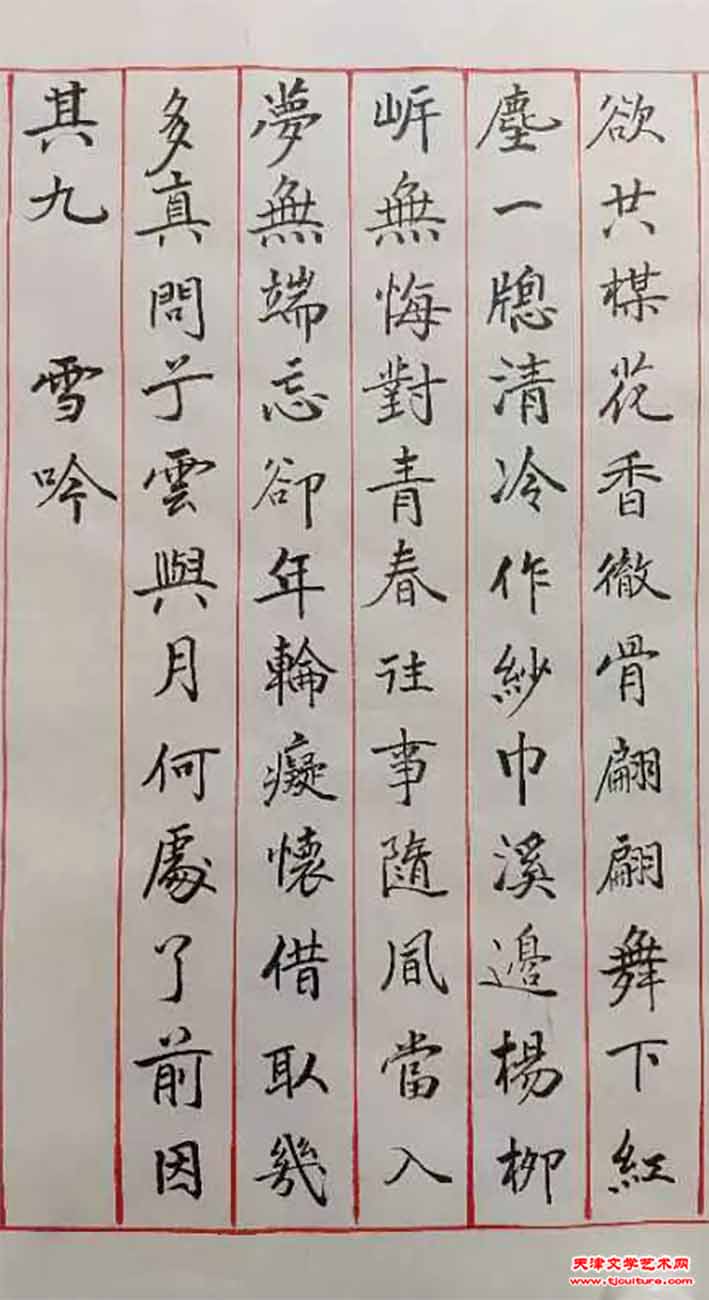 欲共楳花香徹骨翩翩舞下紅
塵一牕清冷作紗巾溪邊楊柳
岸無悔對青春往事隨風當入
夢無端忘卻年輪癡懷借取幾
多真問于雲與月何處了前因
其九 雪吟
天津文学艺术网
www.tjculture.com